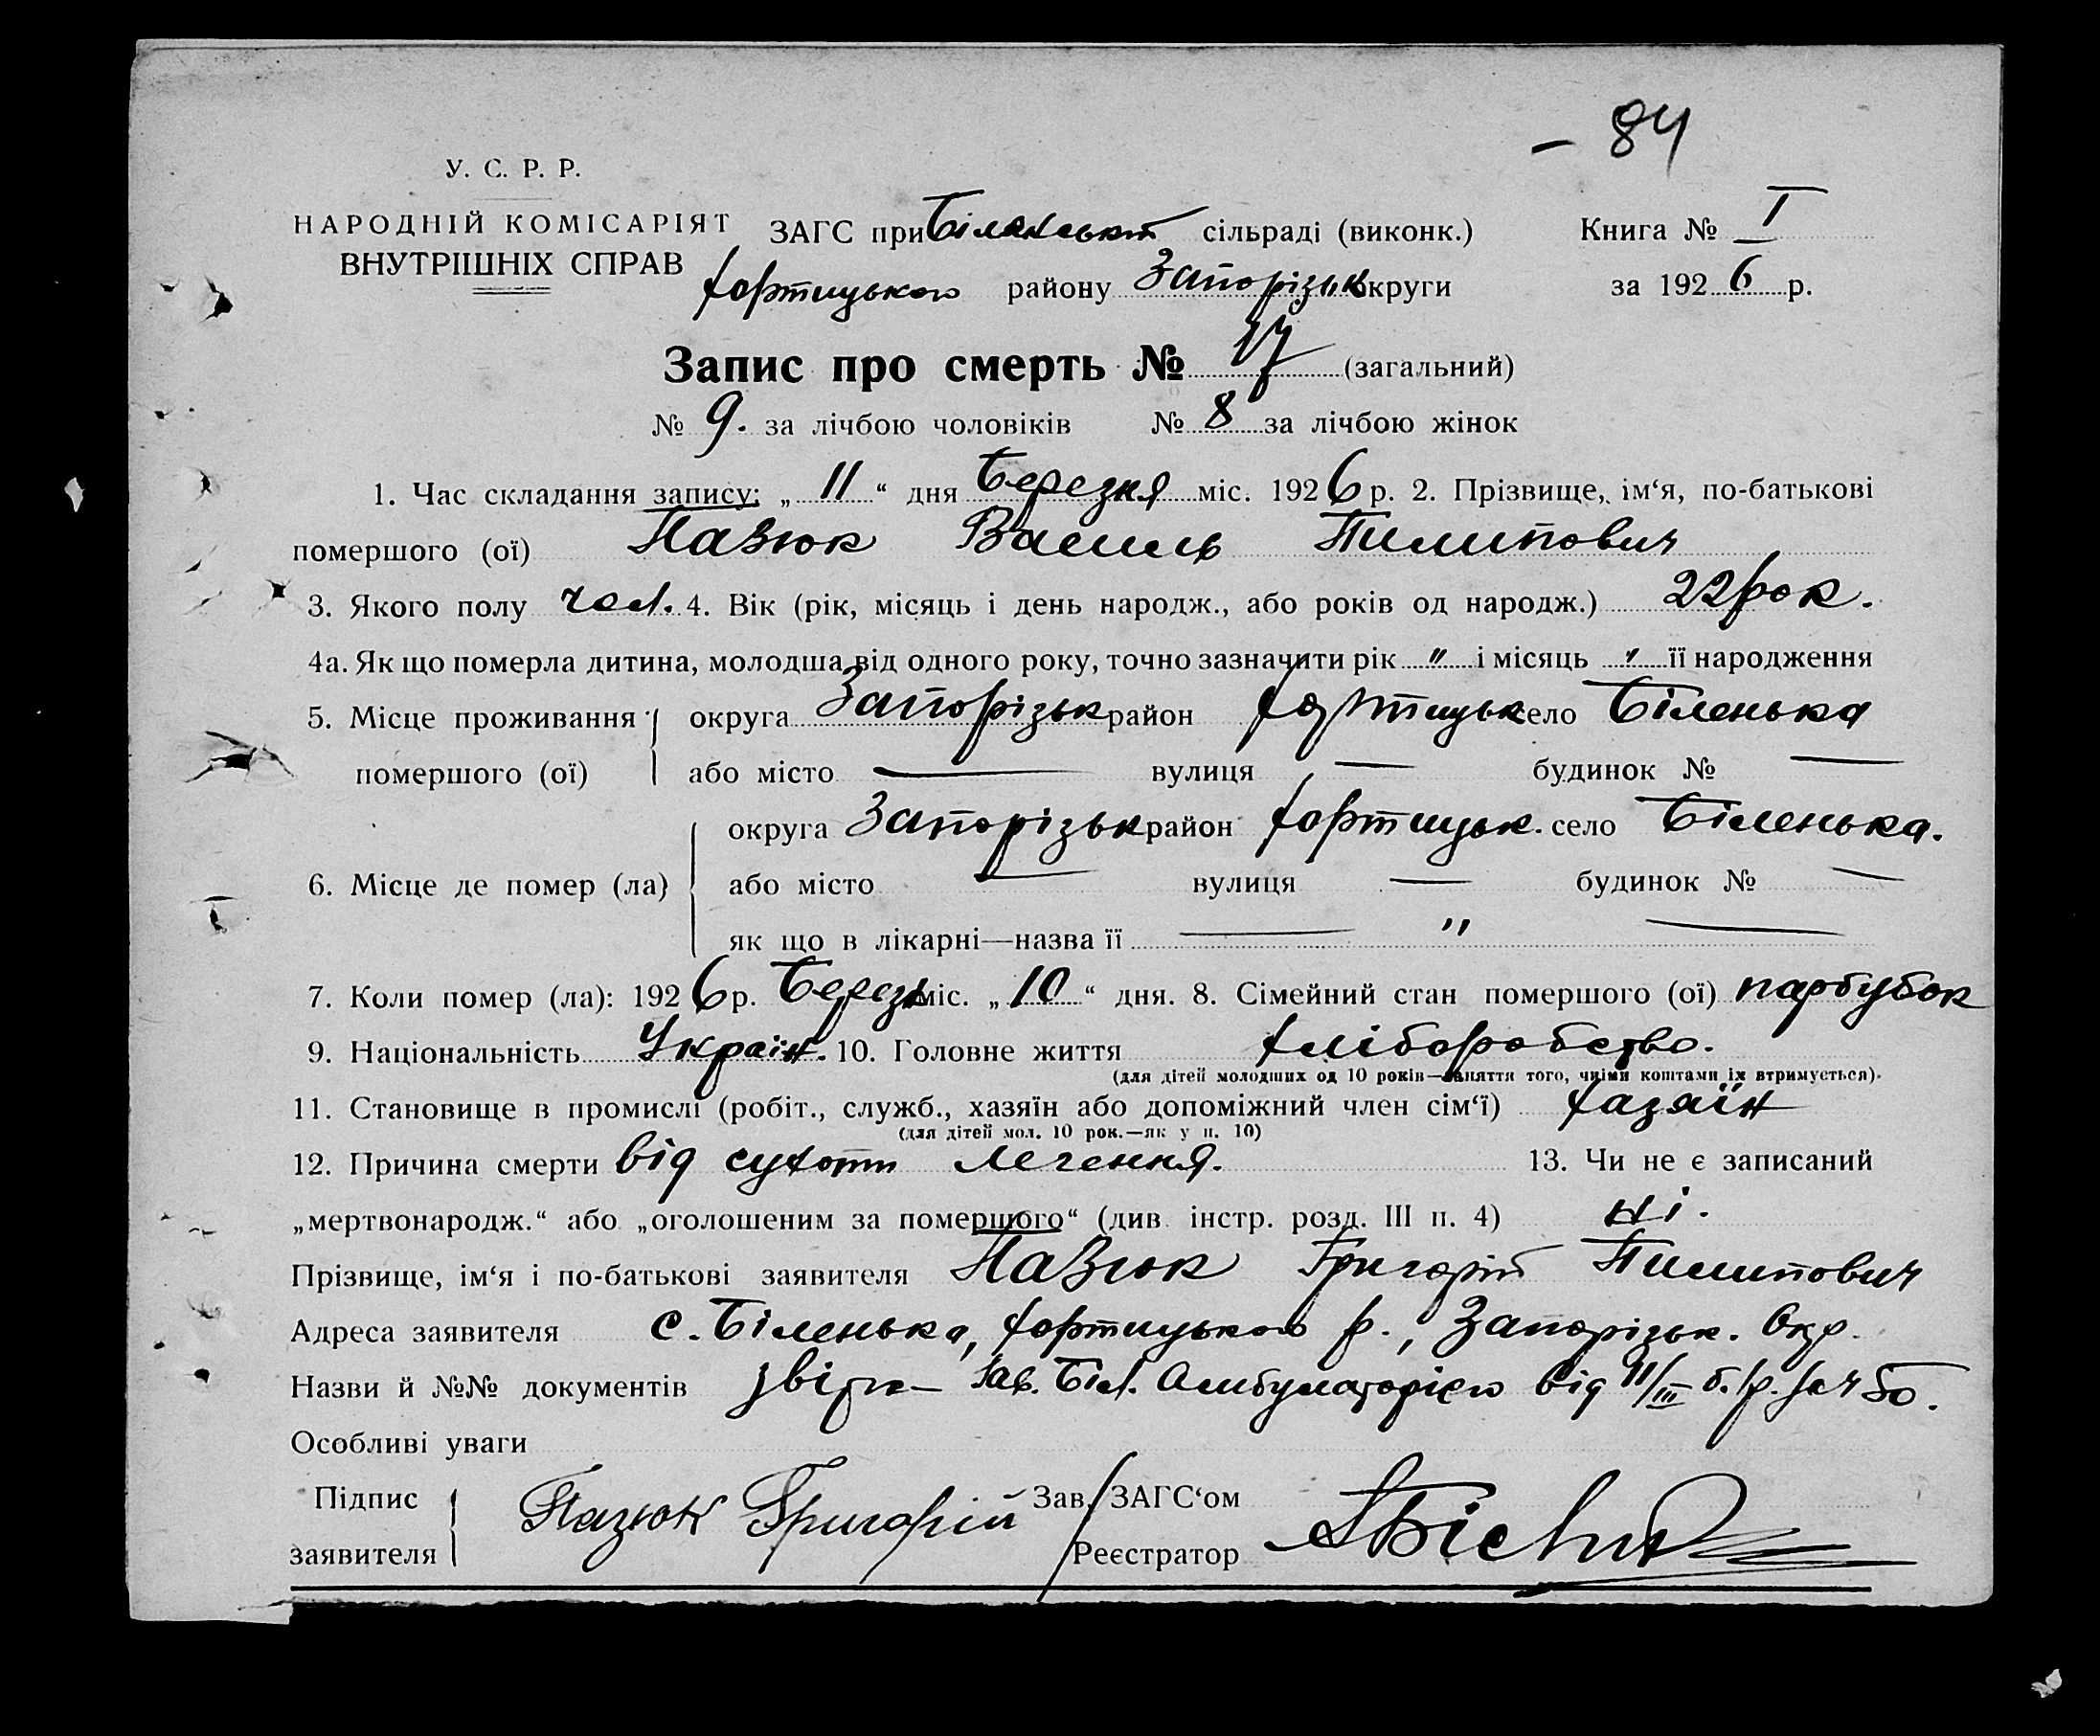 – 84
У. С. Р. Р.
НАРОДНІЙ КОМІСАРІЯТ
ВНУТРІШНІХ СПРАВ
ЗАГС при Біленськй сільраді (виконк.)
Книга № I
Хортицького району Запорізьк округи
за 1926 р.
Запис про смерть № 17 (загальний)
№ 9. за лічбою чоловіків № 8 за лічбою жінок
1. Час складання запису: „11“ дня Березня міс. 1926 р. 2. Прізвище, ім‘я, по-батькові
помершого (ої) Пазюк Василь Пилипович
3. Якого полу чол. 4. Вік (рік, місяць і день народж., або років од народж.) 22 рок.
4а. Як що померла дитина, молодша від одного року, точно зазначити рік " і місяць " її народження
5. Місце проживання помершого (ої) округа Запорізьк район Хортицьк село Біленька
або місто — вулиця — будинок № —
6. Місце де помер (ла) округа Запорізьк район Хортицьк. село Біленька.
або місто — вулиця — будинок № —
як що в лікарні—назва її — " —
7. Коли помер (ла): 1926 р. Березн міс. „10“ дня. 8. Сімейний стан помершого (ої) парубок
9. Національність Україн. 10. Головне життя Хліборобство.
(для дітей молодших од 10 років—заняття того, чиїми коштами їх втримується).
11. Становище в промислі (робіт., служб., хазяїн або допоміжний член сім‘ї) Хазяїн
(для дітей мол. 10 рок.—як у п. 10)
12. Причина смерти від сухот легення. 13. Чи не є записаний
„мертвонародж.“ або „оголошеним за помершого“ (див. інстр. розд. III п. 4) ні.
Прізвище, ім‘я і по-батькові заявителя Пазюк Григорій Пилипович
Адреса заявителя с. Біленька, Хортицького р., Запорізьк. Окр.
Назви й №№ документів Зав. Біл. Амбулаторією від 11/III б. р. за ч 50.
Особливі уваги
Підпис заявителя Пазюк Григорій
Зав. ЗАГС‘ом
Реєстратор